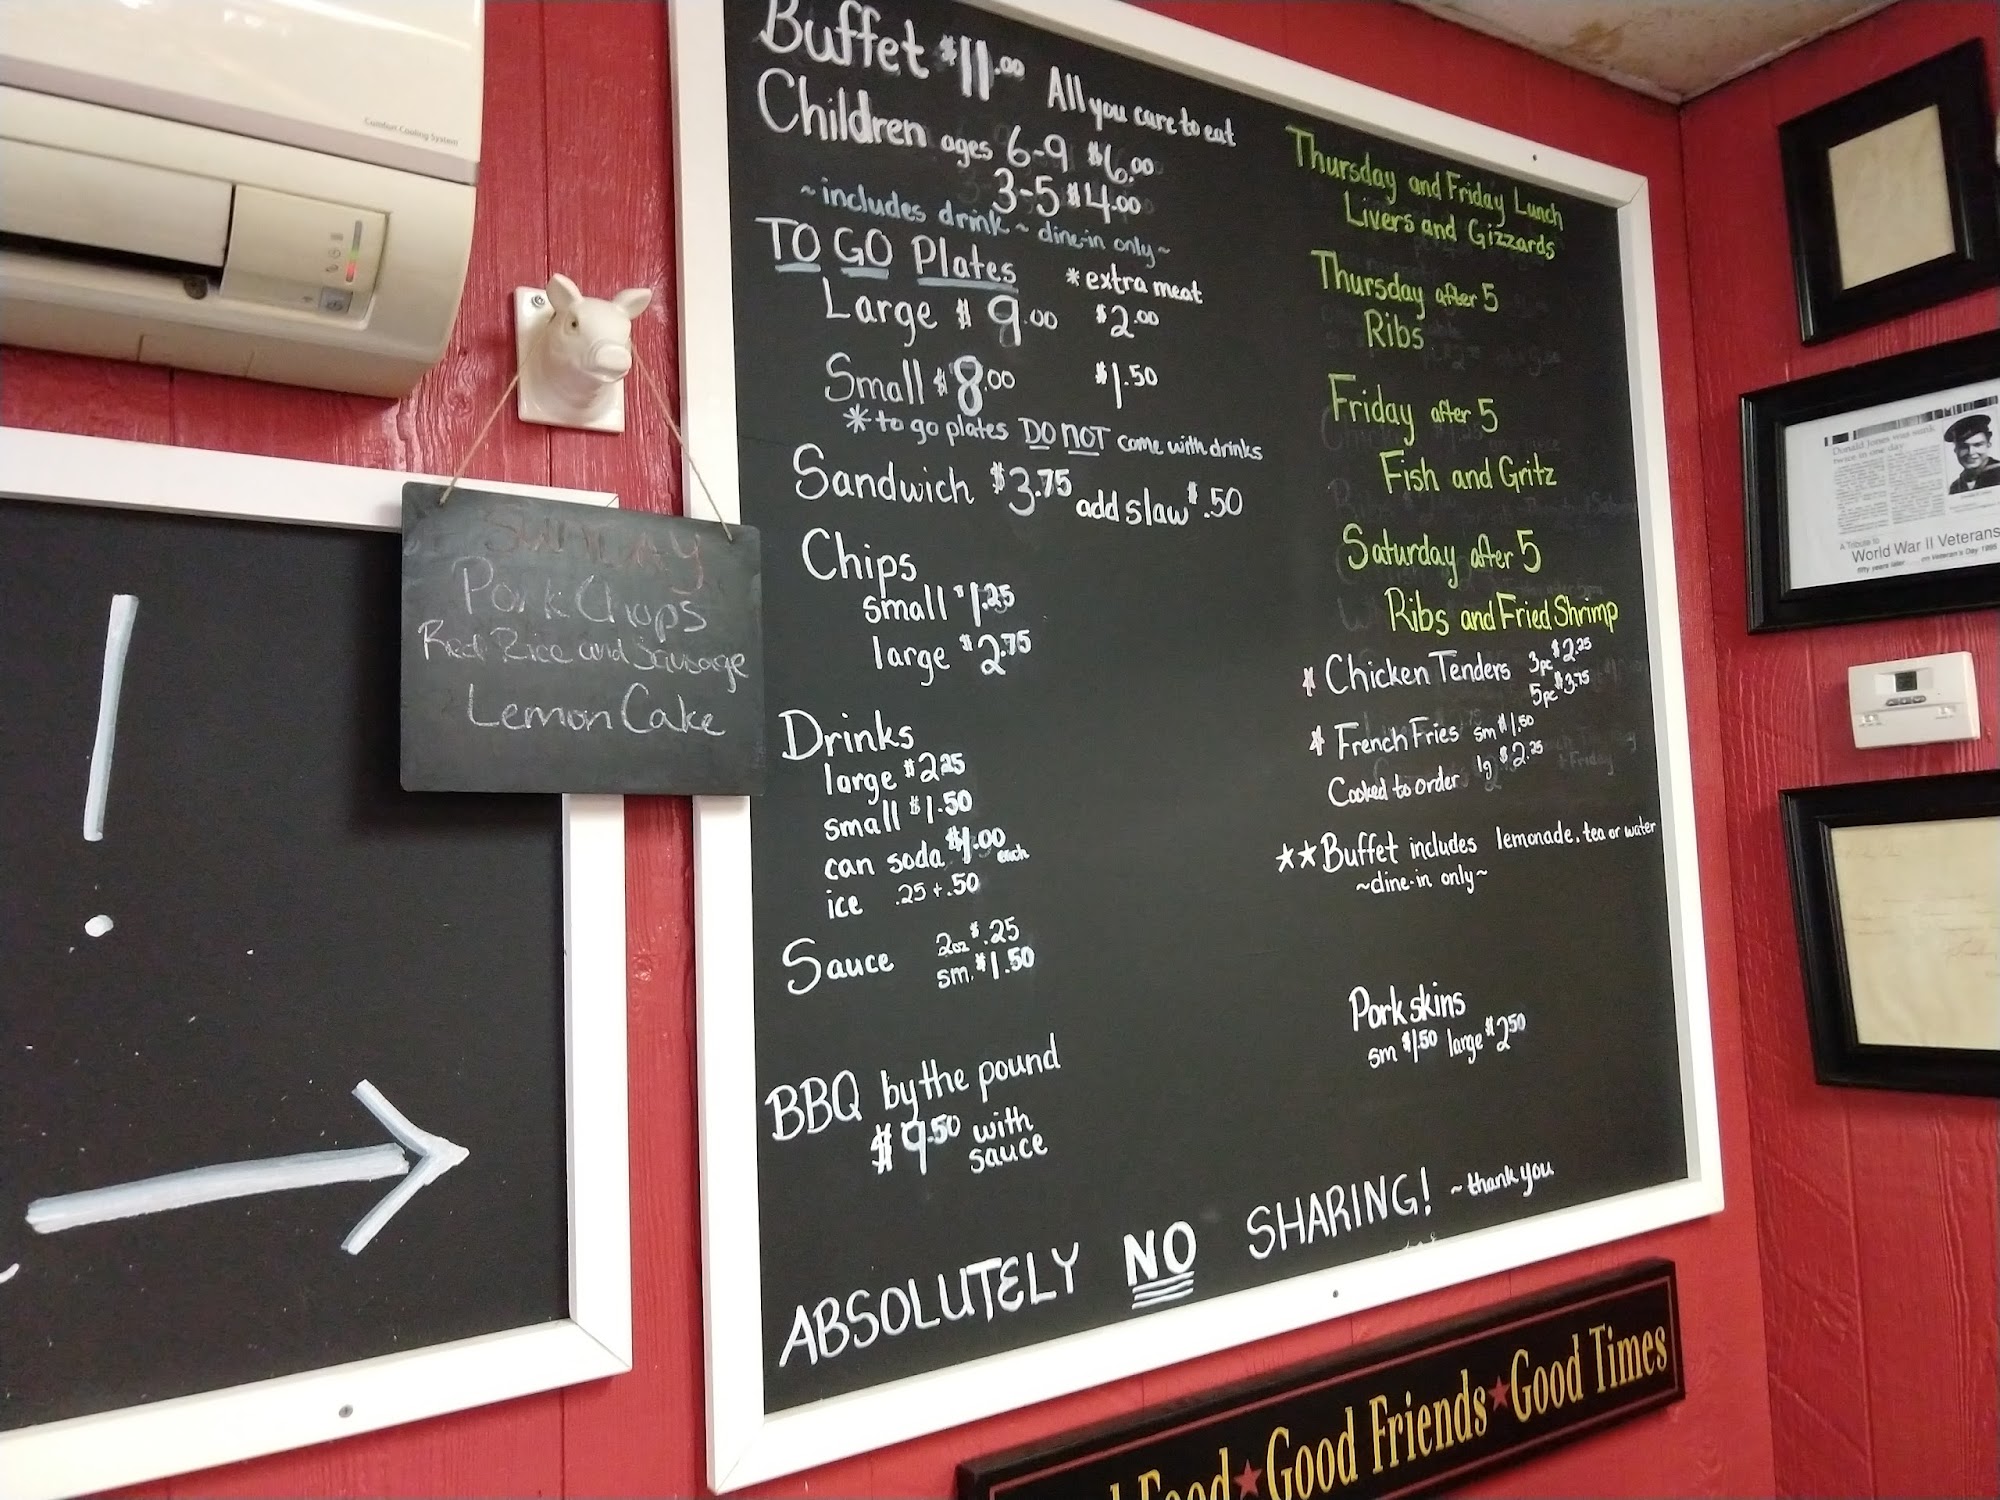 Comfort Cooling System
Buffet $11.00 All you care to eat
Children ages 6-9 $6.00
3-5 $4.00
~includes drink~ dine-in only~
TO GO Plates *extra meat
Large $9.00 $2.00
Small $8.00 $1.50
*to go plates DO NOT come with drinks
Sandwich $3.75 add slaw $.50
Chips
small $1.25
large $2.75
Drinks
large $2.25
small $1.50
can soda $1.00 each
ice .25 + .50
Sauce 2oz $.25
sm. $1.50
BBQ by the pound
$9.50 with
sauce
Thursday and Friday Lunch
Livers and Gizzards
Thursday after 5
Ribs
Friday after 5
Fish and Gritz
Saturday after 5
Ribs and Fried Shrimp
* Chicken Tenders 3pc $2.25
5pc $3.75
* French Fries sm $1.50
Cooked to order lg $2.25
**Buffet includes lemonade, tea or water
~dine-in only~
Pork skins
sm $1.50 large $2.50
ABSOLUTELY NO SHARING! ~thank you
SUNDAY
Pork Chops
Red Rice and Sausage
Lemon Cake
!
Donald Jones was sunk
twice in one day
A Tribute to
World War II Veterans
fifty years later on Veteran's Day 1995
Food★Good Friends★Good Times